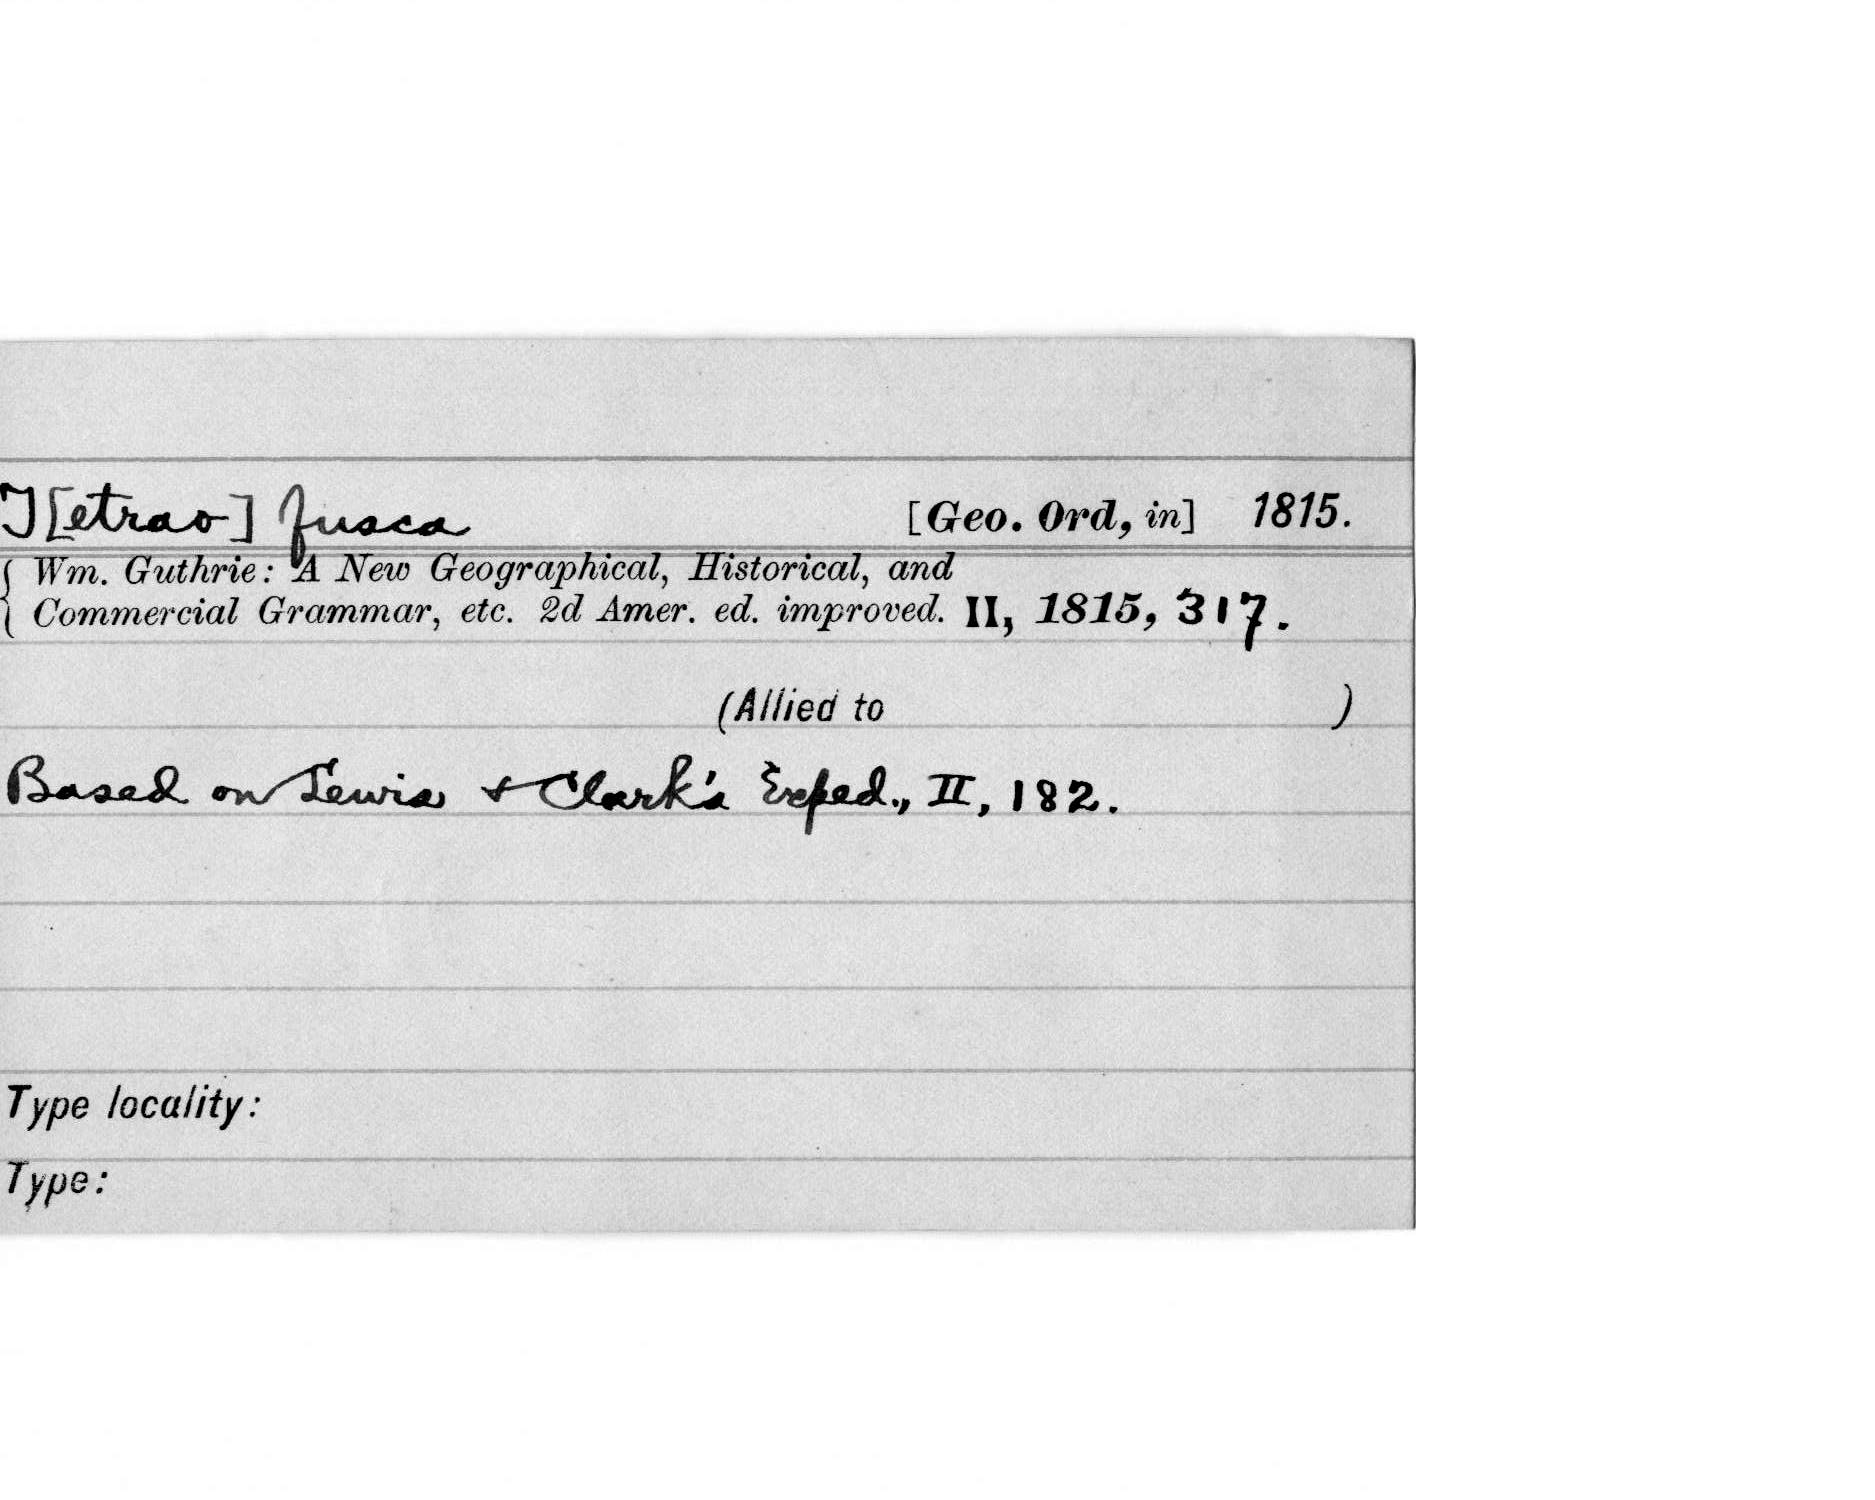 T[etrao] fusca [Geo. Ord, in] 1815.
Wm. Guthrie: A New Geographical, Historical, and
Commercial Grammar, etc. 2d Amer. ed. improved. II, 1815, 317.
(Allied to )
Based on Lewis & Clark's Exped., II, 182.
Type locality:
Type: